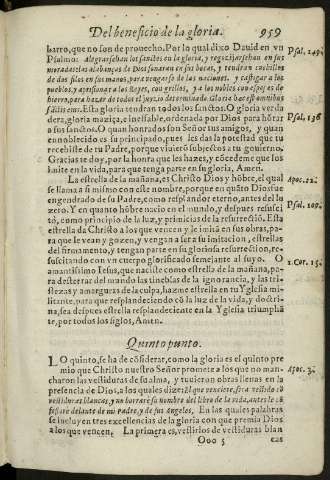 Del beneficio de la gloria. 959
barro, que no son de prouecho. Por lo qual dixo Dauid en vn
Psalmo: Alegrarsehan los sanctos en la gloria, y regozijarsehan en sus
moradas: las alabanças de Dios sonaran en sus bocas, y tendran cuchillos
de dos filos en sus manos, para vengarse de las naciones, y castigar a los
pueblos, y aprisionar a los Reyes, con grillos, y a los nobles con esposas de
hierro, para hazer de todos el juyzio determinado. Gloria hæc est omnibus
sãctis eius. Esta gloria tendran todos los sanctos. O gloria verda
dera, gloria maziça, e inefable, ordenada por Dios para hõrar
a sus sanctos. O quan honrados son Señor tus amigos, y quan
ennoblecido es su principado, pues les das la potestad que tu
recebiste de tu Padre, porque viuierõ subjectos a tu gouierno.
Gracias te doy, por la honra que les hazes, y cõcedeme que los
imite en la vida, para que tenga parte en su gloria, Amen.
La estrella de la mañana, es Christo Dios y hõbre, el qual
se llama a si mismo con este nombre, porque en quãto Dios fue
engendrado de su Padre, como resplandor eterno, antes del lu
zero. Y en quanto hõbre nacio en el mundo, y despues resusci
tò, como principio de la luz, y primicias de la resurrectiõ. Esta
estrella da Christo a los que vencen y le imitã en sus obras, pa-
ra que le vean y gozen, y vengan a ser a su imitacion, estrellas
del firmamento, y tengan parte en su gloriosa resurrection, re-
suscitando con vn cuerpo glorificado semejante al suyo. O
amantissimo Iesus, que naciste como estrella de la mañana, pa-
ra desterrar del mundo las tinieblas de la ignorancia, y las tri-
stezas y amarguras de la culpa, hazme estrella en tu Yglesia mi-
litante, para que resplandeciendo cõ la luz de la vida, y doctri-
na, sea despues estrella resplandeciente en la Yglesia triumphã
te, por todos los siglos, Amen.
Quinto punto.
LO quinto, se ha de cõsiderar, como la gloria es el quinto pre
mio que Christo nuestro Señor promete a los que no man-
charon las vestiduras de su alma, y tuuieron obras llenas en la
presencia de Dios, a los quales dize: El que venciere, serà vestido cõ
vestiduras blancas, y no borrarè su nombre del libro de la vida, antes le cõ
fessarè delante de mi Padre, y de sus Angeles. En las quales palabras
se incluyen tres excellencias de la gloria con que premia Dios
a los que vencen. La primera es, vestirlos de vestiduras blan
Ooo 5 cas
Psal. 149.
Psal. 138
Apoc. 22.
Psal. 109.
1. Cor. 15.
Apoc. 3.